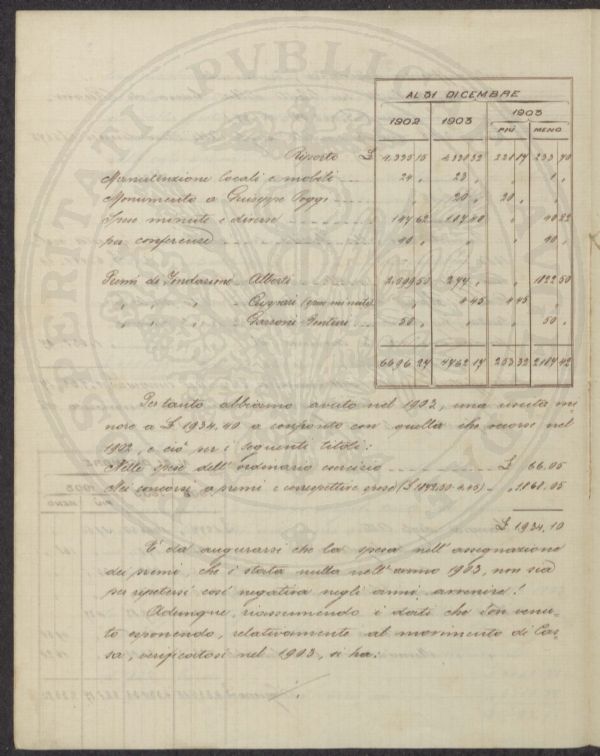 PVBLICO
AL 31 DICEMBRE
1902 1903 1903
PIÙ MENO
Riporto £
Manutenzione locali e mobili 24 , 23 , , 1 ,
Monumento a Giuseppe Poggi , 20 , 20 , ,
Spese minute e diverse 147 62 107 40 , 40 22
per conferenze 90 , , , 90 ,
Premi di Fondazione Alberti 244 , , 1822 50
" " " (spese minute) , 4 45 4 45 ,
" " " 50 , , , 50 ,
6696 27 4762 17 253 32 2187 42
Pertanto abbiamo avuto nel 1903, una uscita mi
nore a £ 1934.10 a confronto con quella che occorse nel
1902, e ciò per i seguenti titoli:
Nelle spese dell' ordinario esercizio £ 66.05
Nei concorsi a premi e consupettive spese 1868.05
£ 1934.10
E' da augurarsi che la spesa nell' assegnazione
dei premi, che è stata nulla nell' anno 1903, non sia
per ripetersi così negativa negli anni avvenire!
Adunque, riassumendo i dati che son venu-
to esponendo, relativamente al movimento di Cas-
sa, verificatosi nel 1903, si ha: